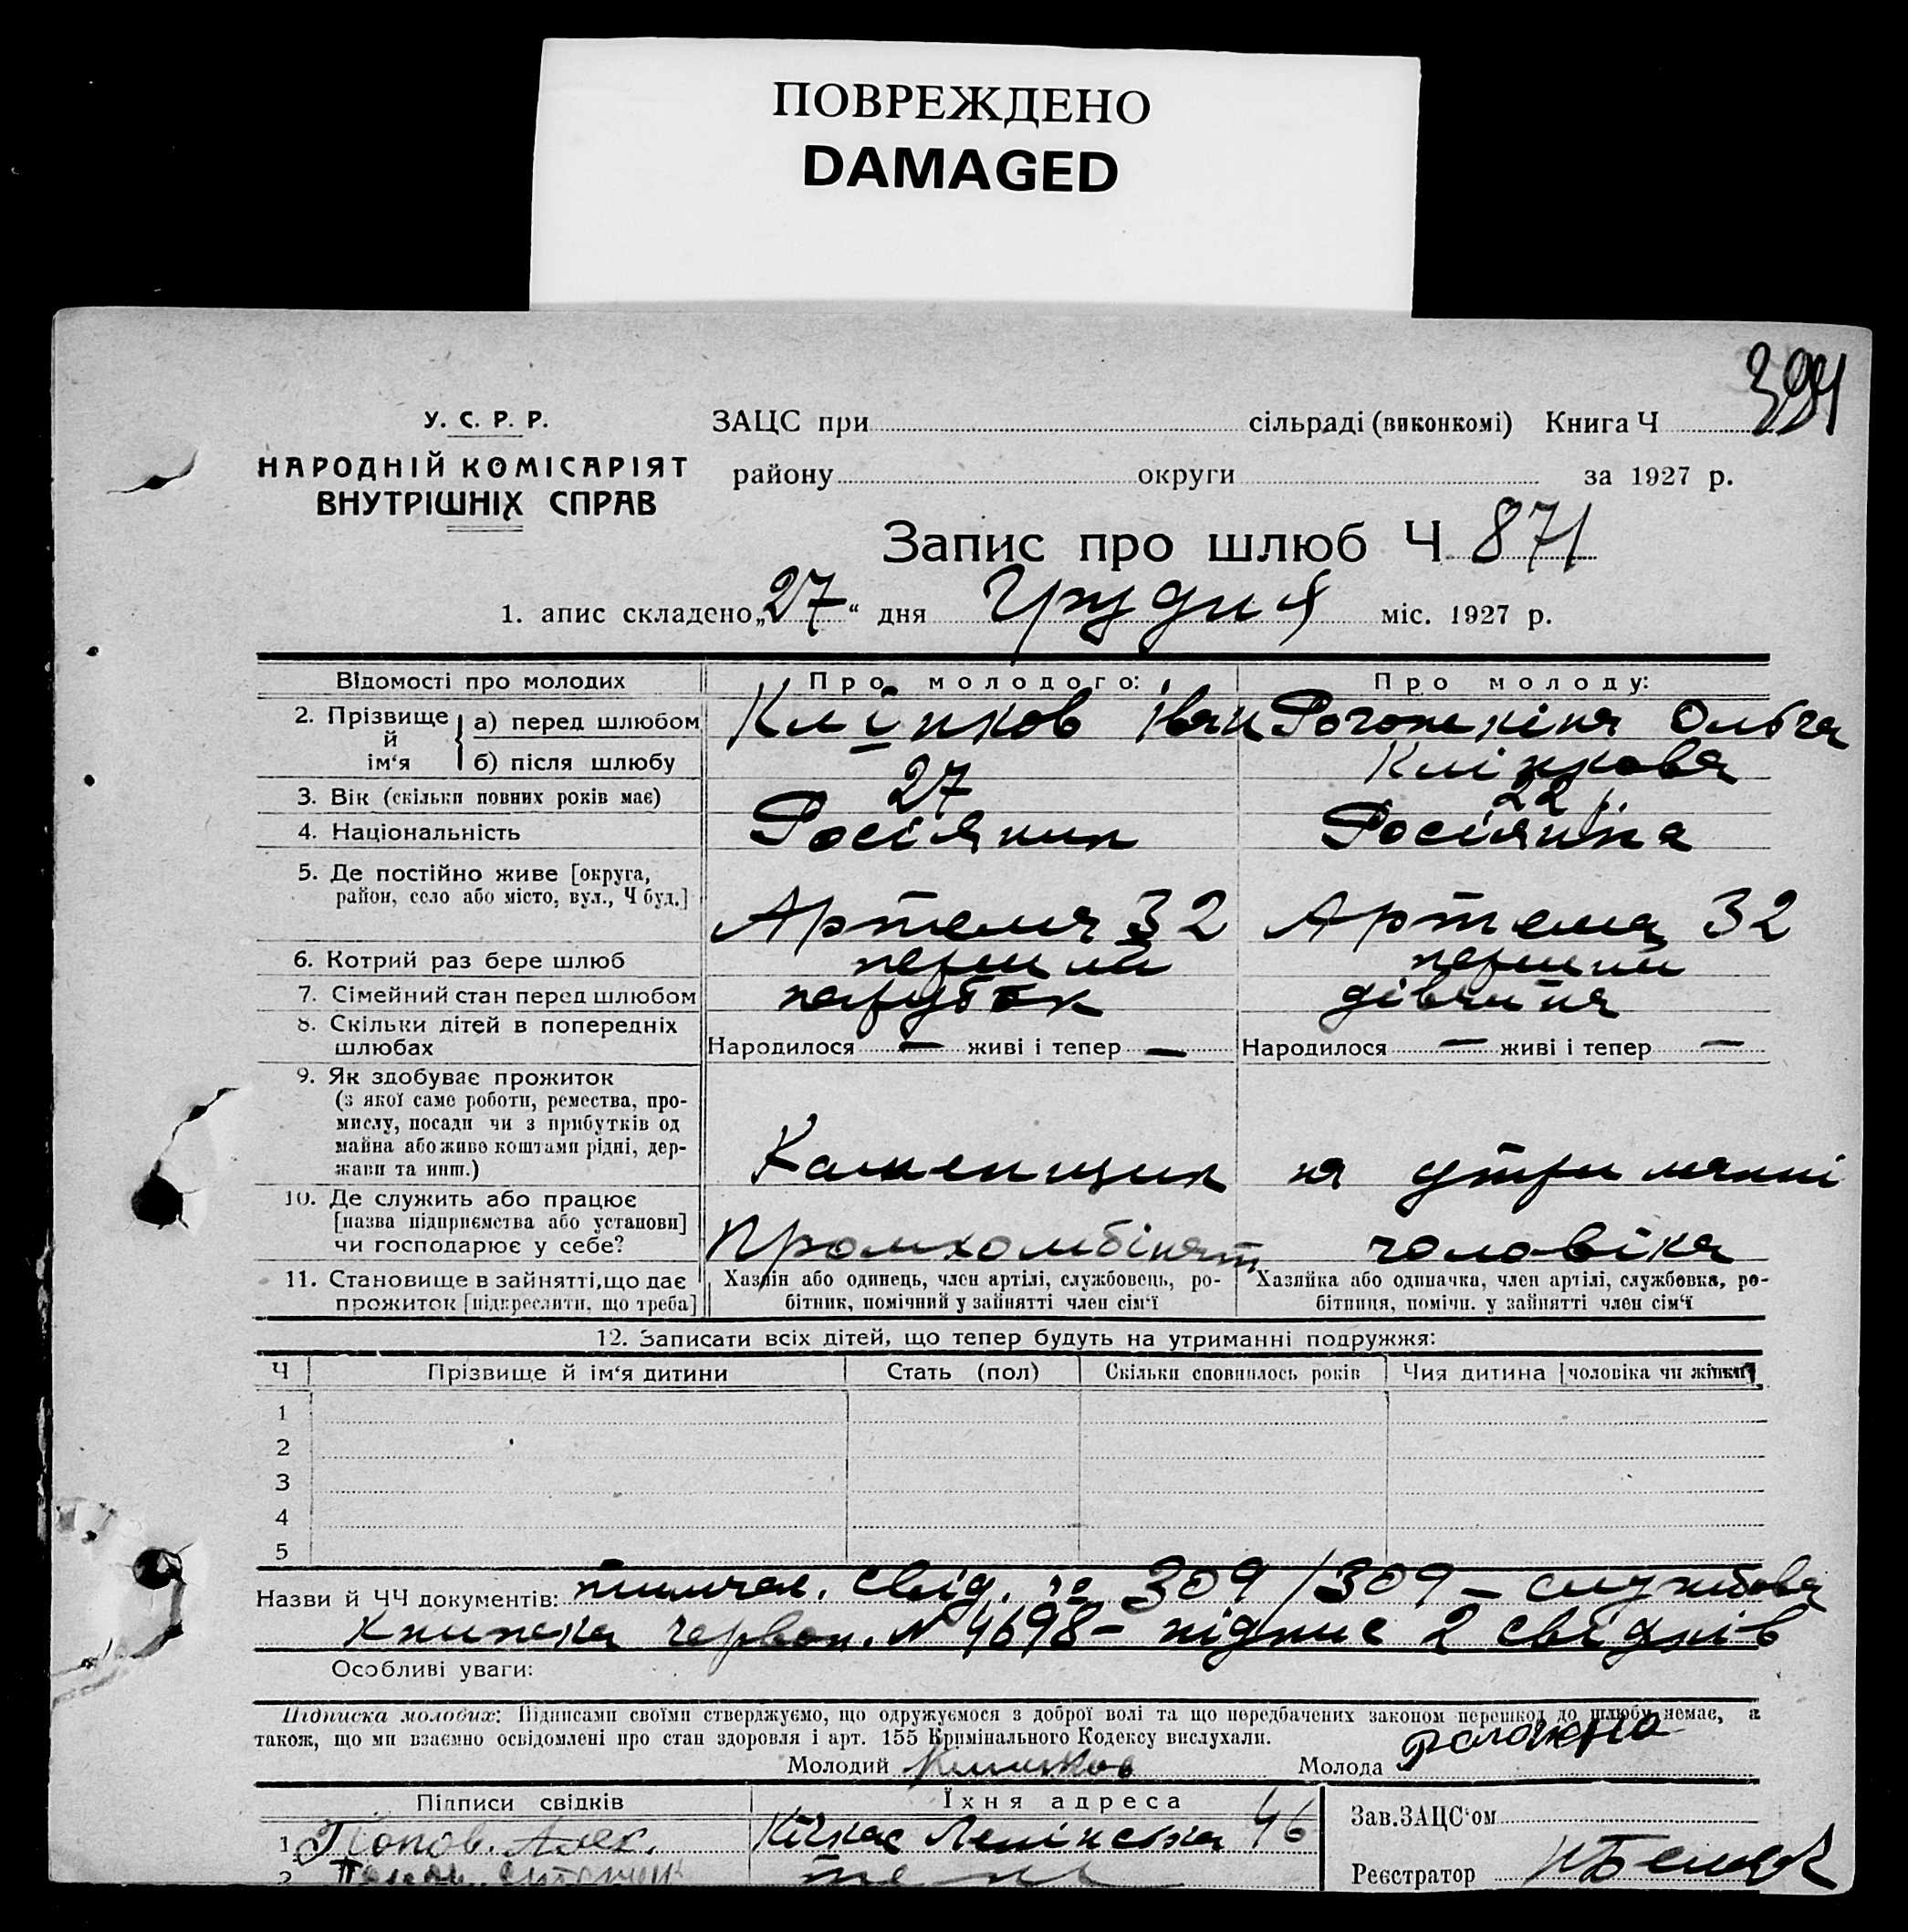 ПОВРЕЖДЕНО
DAMAGED
394
У. С. Р. Р.
НАРОДНІЙ КОМІСАРІЯТ
ВНУТРІШНІХ СПРАВ
ЗАЦС при сільраді (виконкомі) Книга Ч
району округи за 1927 р.
Запис про шлюб Ч 871
1. апис складено „27“ дня Грудня міс. 1927 р.
Відомості про молодих Про молодого: Про молоду:
2. Прізвище й ім‘я а) перед шлюбом Клінков Іван Рогожкіна Ольга
б) після шлюбуКлінкова
3. Вік (скільки повних років має) 27 22
4. Національність Росіянин Росіянка
5. Де постійно живе [округа,
район, село або місто, вул., Ч буд.] Артема 32 Артема 32
6. Котрий раз бере шлюб перший перший
7. Сімейний стан перед шлюбом парубок дівчина
8. Скільки дітей в попередніх
шлюбах Народилося — живі і тепер — Народилося — живі і тепер —
9. Як здобуває прожиток
(з якої саме роботи, ремества, про-
мислу, посади чи з прибутків од
майна або живе коштами рідні, дер-
жави та инш.) Каменщик на утриманні
10. Де служить або працює
[назва підприємства або установи]
чи господарює у себе? Промкомбінат чоловіка
11. Становище в зайнятті, що дає
прожиток [підкреслити, що треба]
Хазяїн або одинець, член артілі, службовець, ро-
бітник, помічний у зайнятті член сім‘ї
Хазяйка або одиначка, член артілі, службовка, ро-
бітниця, помічн. у зайнятті член сім‘ї
12. Записати всіх дітей, що тепер будуть на утриманні подружжя:
Ч Прізвище й ім‘я дитини Стать (пол) Скільки сповнилось років Чия дитина [чоловіка чи жінки]
1
2
3
4
5
Назви й ЧЧ документів: тимчас. свід. за 309/309 – службова
книжка червон. № 4698 – підпис 2 свідків
Особливі уваги:
Підписка молодих: Підписами своїми стверджуємо, що одружуємося з доброї волі та що передбачених законом перешкод до шлюбу немає, а
також, що ми взаємно освідомлені про стан здоровля і арт. 155 Кримінального Кодексу вислухали.
Молодий Клинков Молода
Підписи свідків Їхня адреса
1. Попов. Алек. Кічкас Ленінська 46
2
Зав. ЗАЦС‘ом
Реєстратор